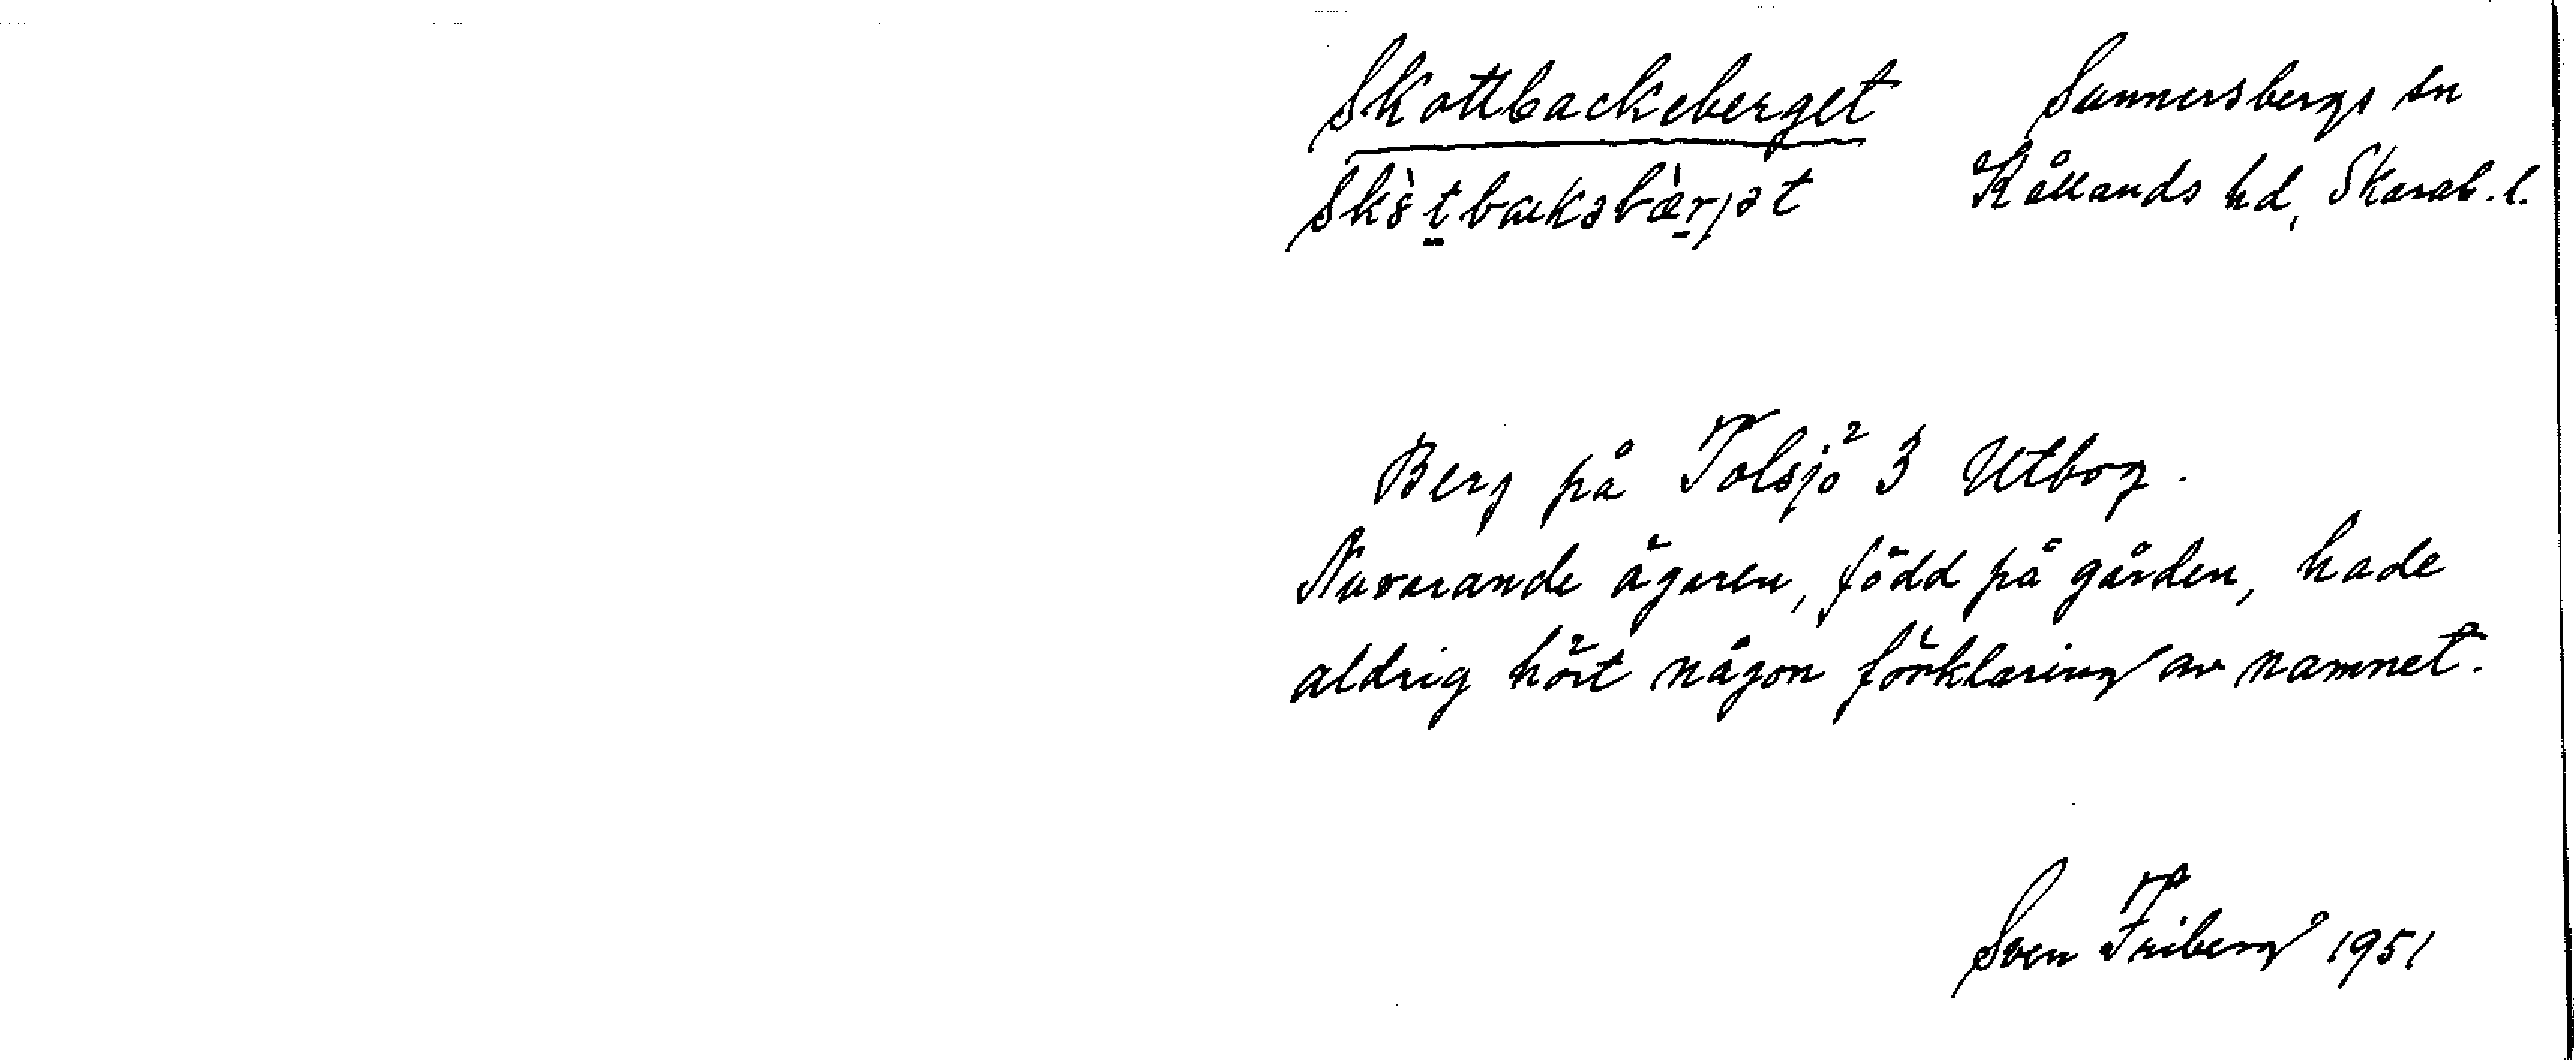 Skottbackeberget Sunnersbergs sn
Kållands hd, Skarab. l.
Berg på Tolsjö 3² Utbog.
Nuvarande ägaren, född på gården, hade
aldrig hört någon förklaring av namnet.
Sven Friberg 1951